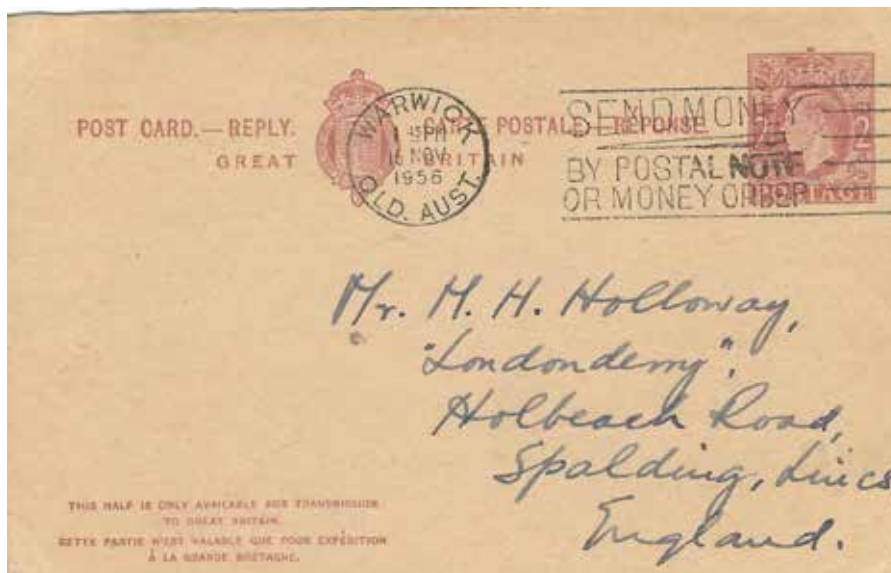 POST CARD.—REPLY. CARTE POSTALE—RÉPONSE
GREAT BRITAIN
WARWICK
1 45 PM
15 NOV
1956
QLD. AUST.
SEND MONEY
BY POSTAL NOTE
OR MONEY ORDER
POSTAGE
Mr. M. H. Holloway,
"Londonderry",
Holbeach Road,
Spalding, Lincs
England.
THIS HALF IS ONLY AVAILABLE FOR TRANSMISSION
TO GREAT BRITAIN.
CETTE PARTIE N'EST VALABLE QUE POUR EXPÉDITION
À LA GRANDE BRETAGNE.